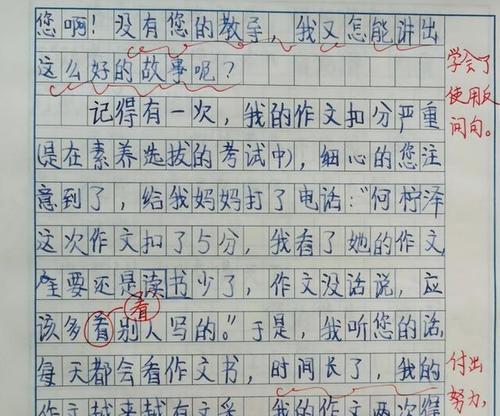 您啊！没有您的教导，我又怎能讲出
这么好的故事呢？
学会了
使用反
问句。
记得有一次，我的作文扣分严重
(是在素养选拔的考试中)，细心的您注
意到了，给我妈妈打了电话："何柠泽
这次作文扣了5分，我看了她的作文，
主要还是读书少了，作文没话说，应
看
该多看别人写的。"于是，我听您的话，
每天都会看作文书，时间长了，我的
付出
努力，
作文越来越有文采，我的作文两次得